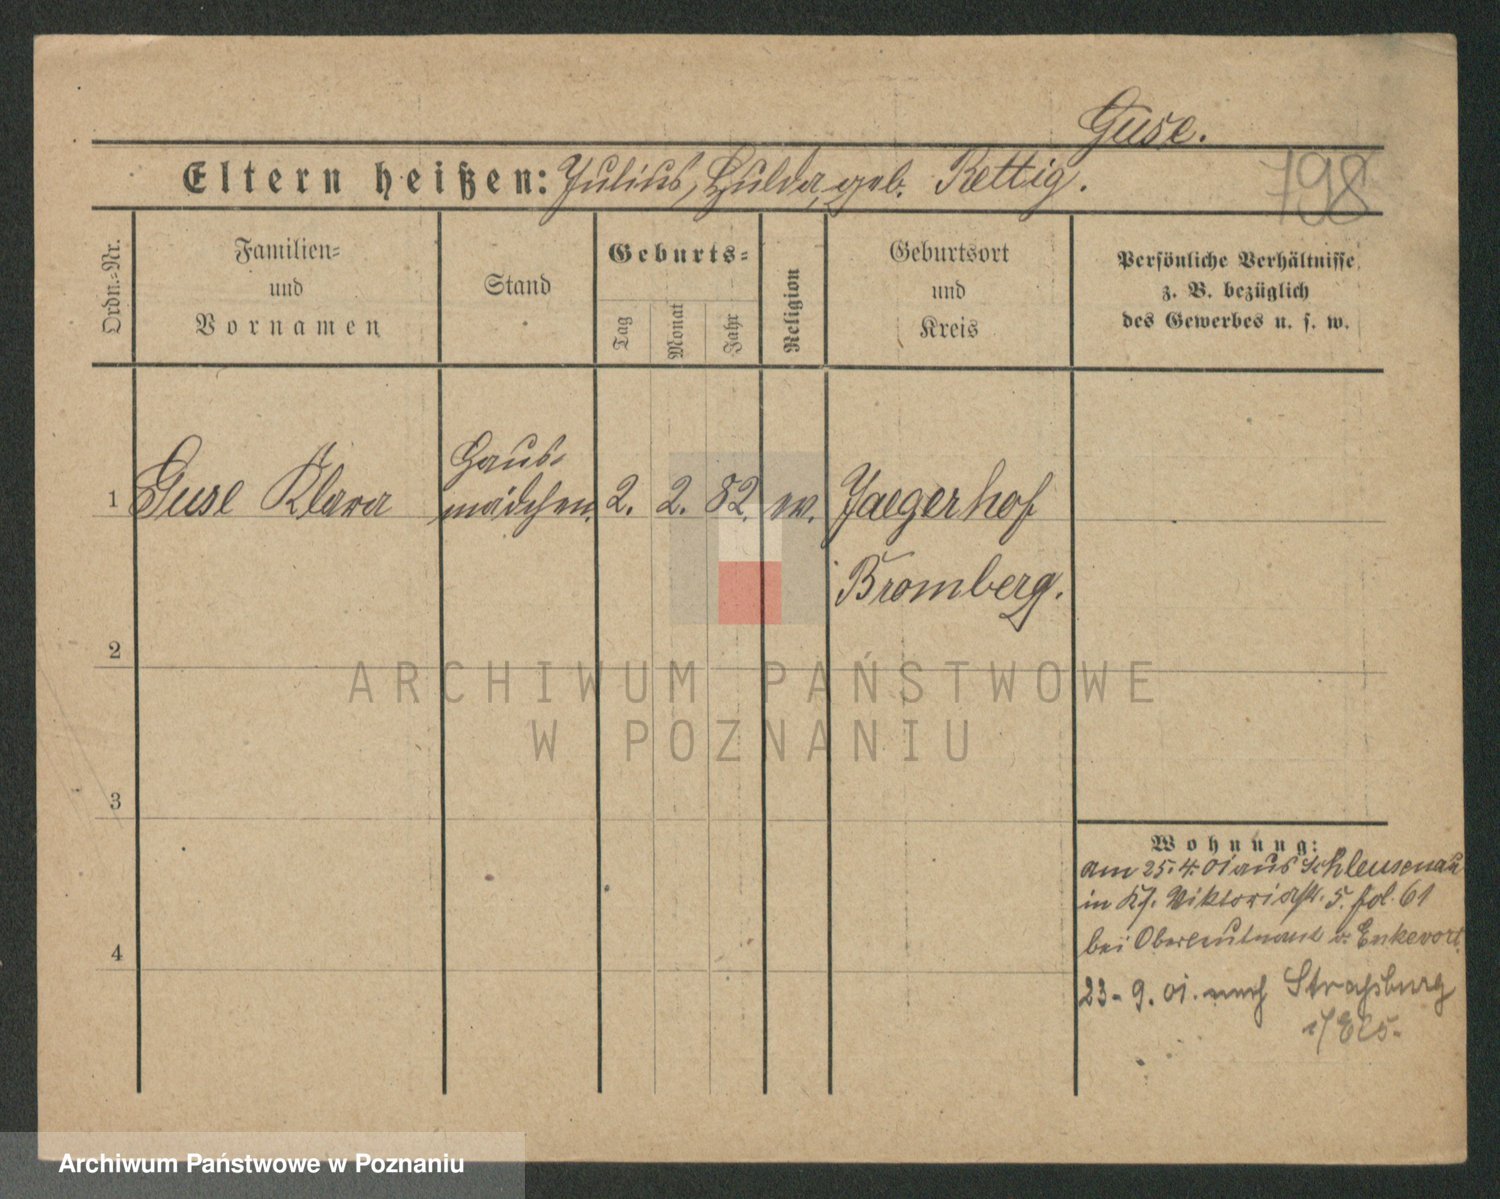 Guse.
Eltern heißen: Julius, Hulda, geb. Rettig.
798
Ordn.-Nr.
Familien-
und
Vornamen
Stand
Geburts-
Tag
Monat
Jahr
Religion
Geburtsort
und
Kreis
Persönliche Verhältnisse
z. B. bezüglich
des Gewerbes u. s. w.
Haus-
1 Guse Klara mädchen. 2. 2. 82. ev. Jaegerhof
Bromberg.
2
3
4
Wohnung:
am 25.4.01 aus Schleusenau
in Viktoriastr. 5. fol. 61
bei Oberleutnant v. Enkevort
23-9.01. nach Strassburg
i/Els.
ARCHIWUM PAŃSTWOWE
W POZNANIU
Archiwum Państwowe w Poznaniu